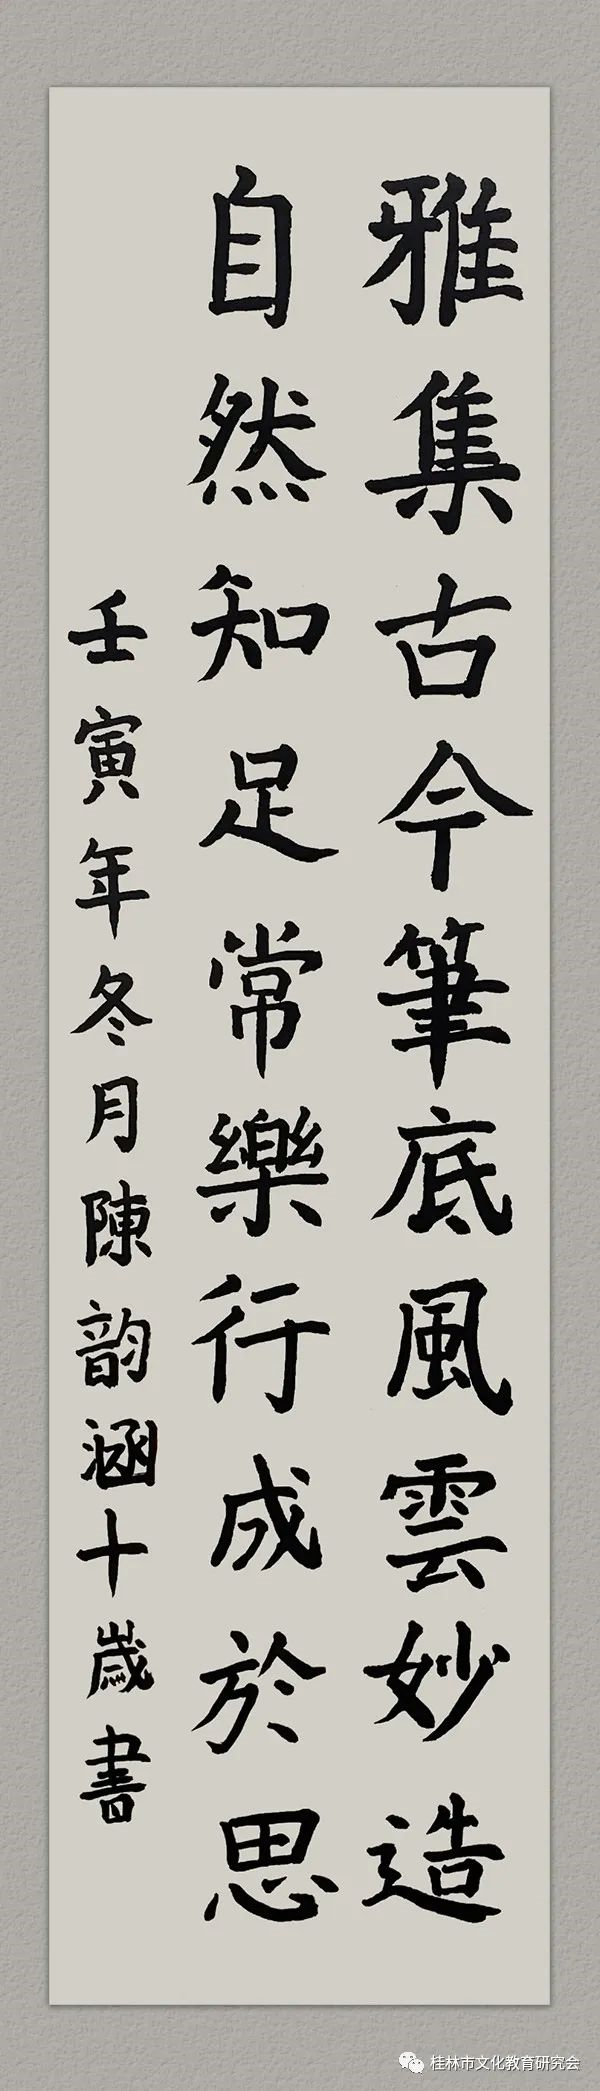 雅集古今筆底風雲妙造
自然知足常樂行成於思
壬寅年冬月陳韵涵十歲書
桂林市文化教育研究会